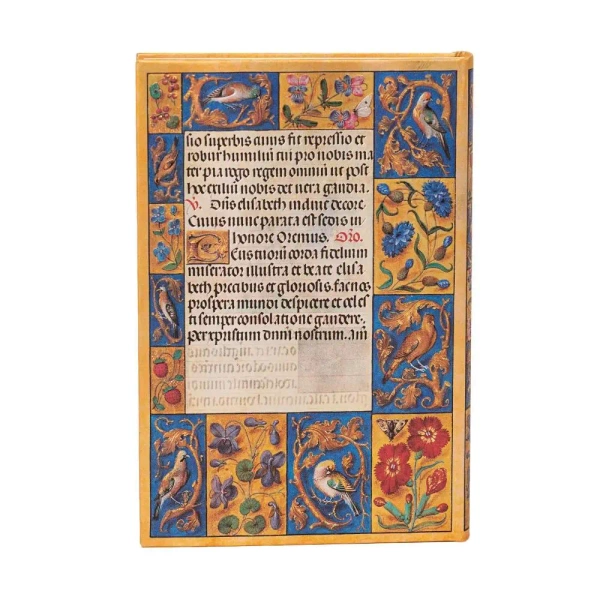 sio superbis cuius fit repressio et
robur humiliū tui pro nobis ma
ter pia rogo regem omniū ut post
hoc exiliū nobis det vera gaudia.
V. Dūs elisabeth induit decore.
Cuius nunc parata est sedis in
honore Oremus. Oro.
Tuorum corda fidelium
miserator illustra et beate elisa
beth precibus et gloriosis. fac nos
prospera mundi despicere et celes
ti semper consolatione gaudere.
Per xpristum dnm nostrum. am